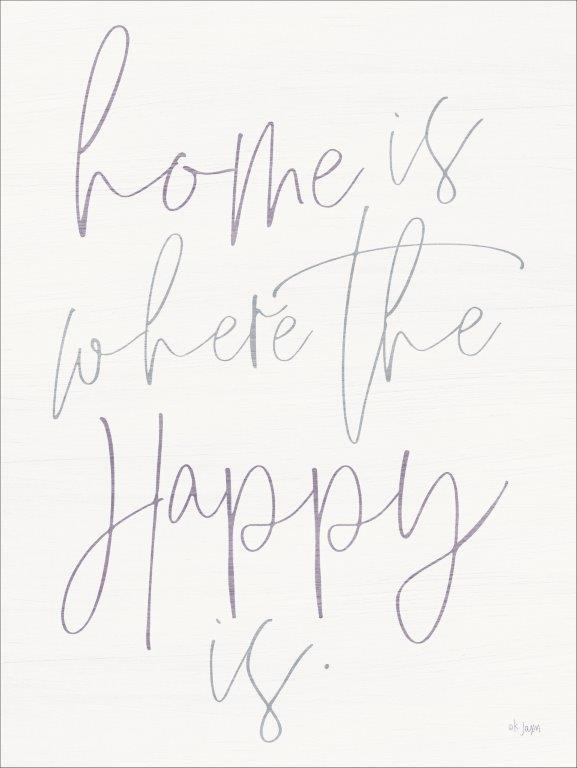 home is
where the
Happy
is.
ok Jaxon